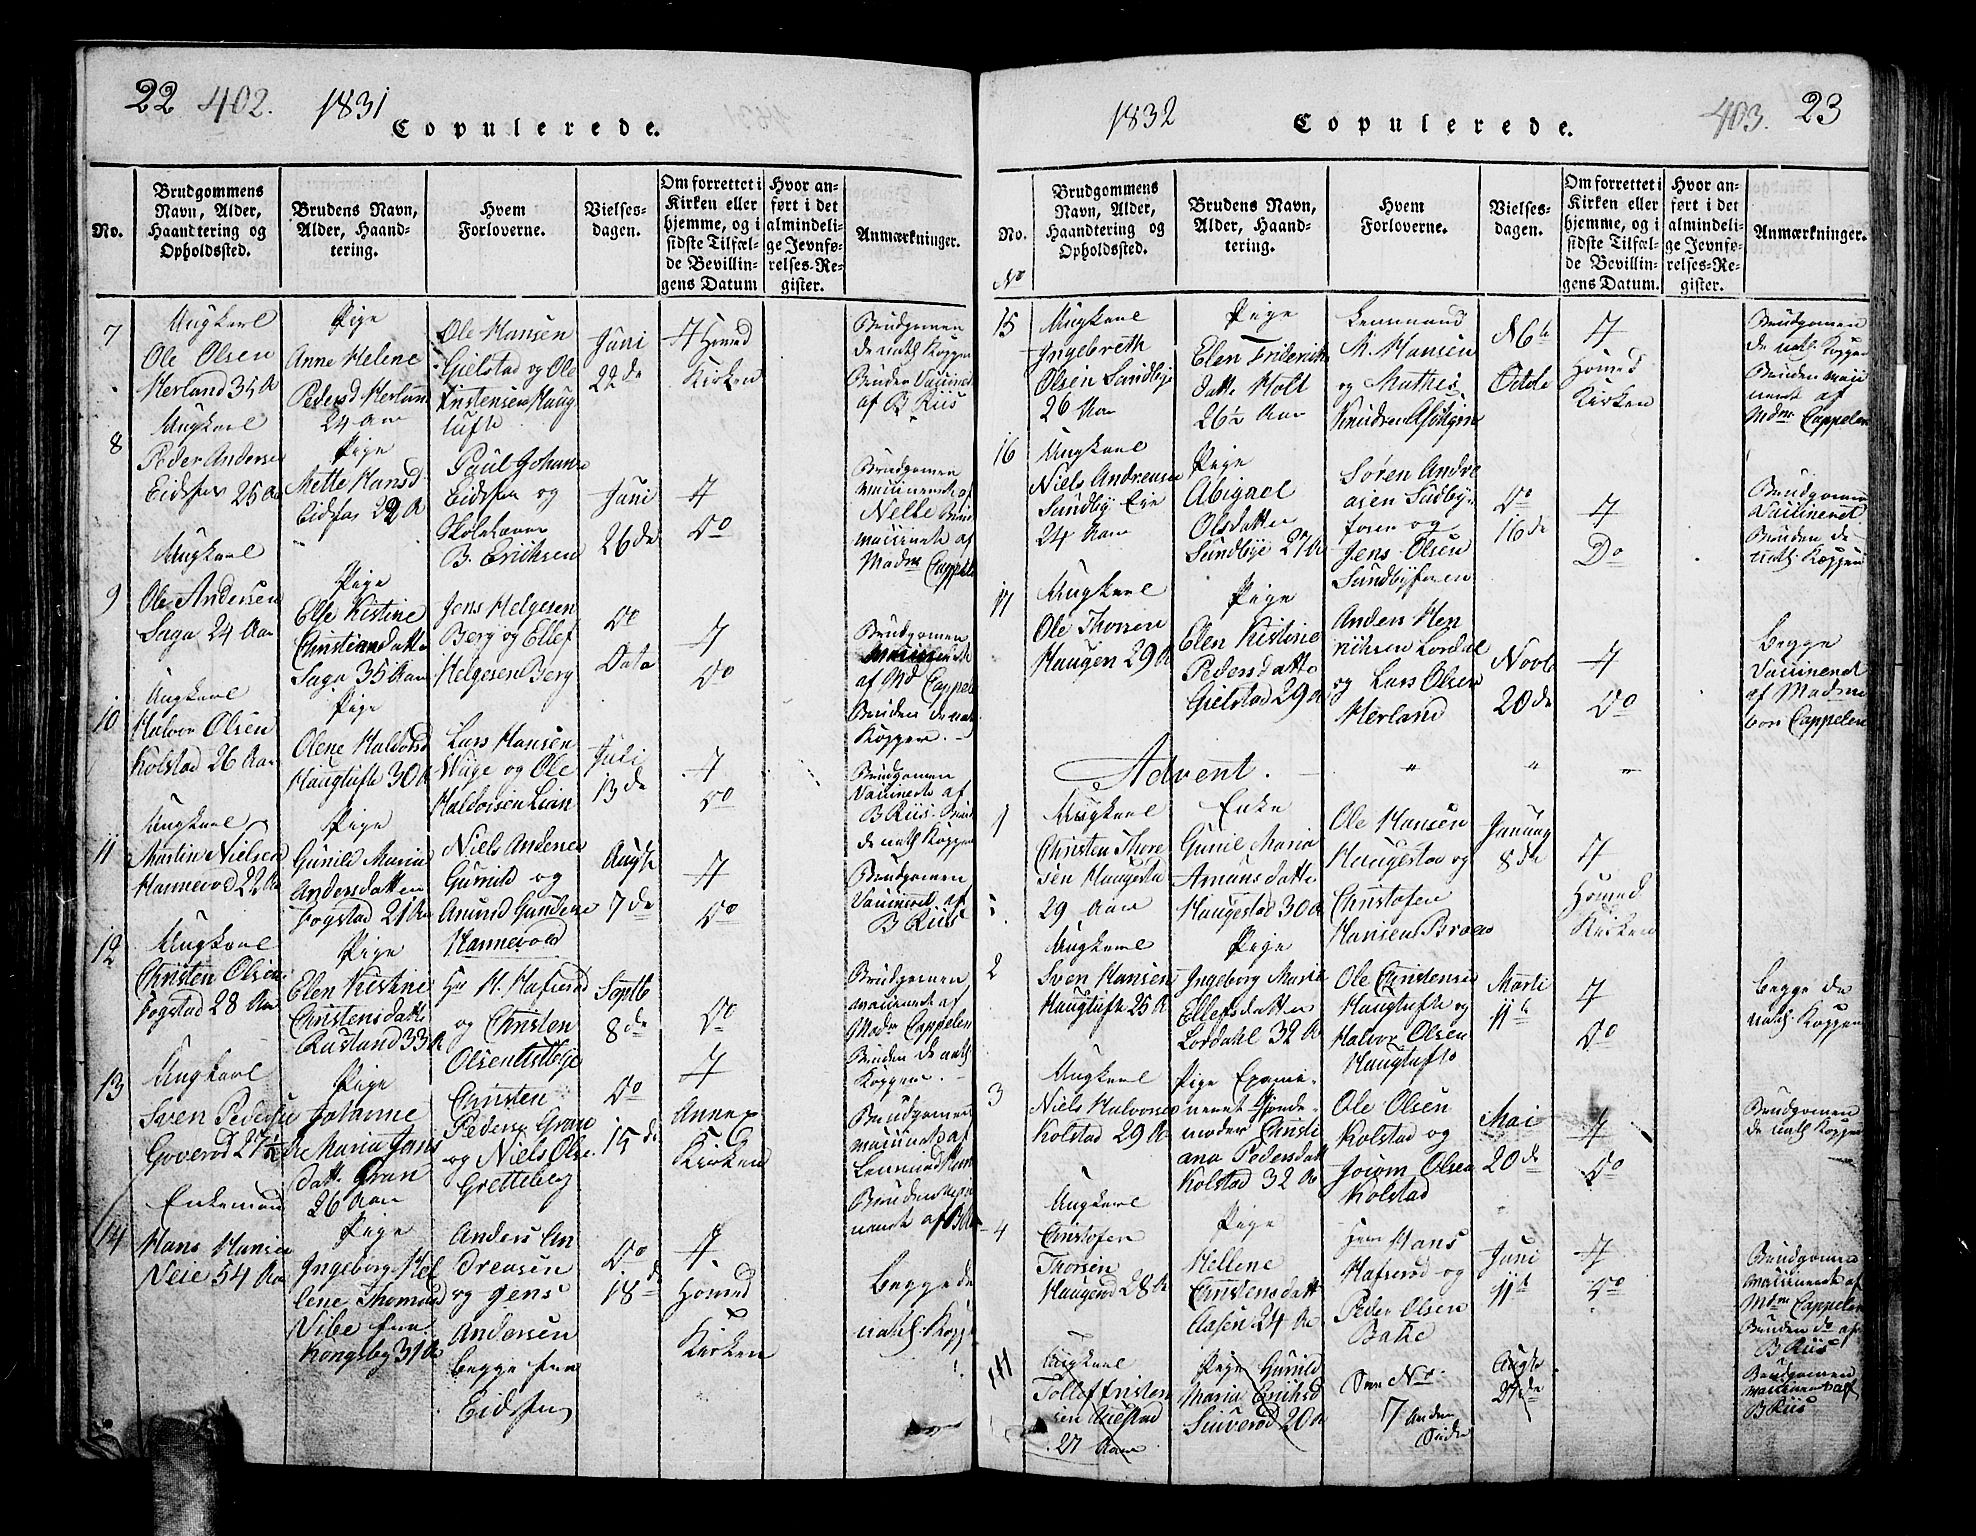 22 402. 1831
Copulerede.
No.
Brudgommens
Navn, Alder,
Haandtering og
Opholdssted.
Brudens Navn,
Alder, Haand-
tering.
Hvem
Forloverne.
Vielses-
dagen.
Om forrettet i
Kirken eller
hjemme, og i
sidste Tilfæl-
de Bevillin-
gens Datum
Hvor an-
ført i det
almindeli-
ge Jevnfø-
relses-Re-
gister.
Anmærkninger.
7
Ungkarl
Ole Olsen
Herland 35 A
Pige
Anne Helene
Pedersd Herland
24 Aar
Ole Hansen
Gielstad og Ole
Kristensen Haug
tufte
Juni
22de
Hoved
Kirken
Brudgomen
de natl. Kopper
Bruden Vaccineret
af B Riis
8
Ungkarl
Peder Andersen
Eidsfos 25 Aar
Pige
Mette Hansd
Eidsfos 22 A
Paul Johanse
Eidsfos og
Skolelærer
B. Erichsen
Juni
26de
Do
Brudgomen
vaccineret af
Nelle Brud
vaccineret af
Madm Cappelen
9
Ungkarl
Ole Andersen
Saga 24 Aar
Pige
Else Kistine
Christiansdatte
Saga 35 Aar
Jens Helgesen
Berg og Ellef
Helgesen Berg
Do
Dato
Do
Brudgomen
af Md Cappelen
Bruden de natl
Kopper.
10
Ungkarl
Halvor Olsen
Kolstad 26 Aar
Pige
Olene Haldorsd
Haugtufte 30 A
Lars Hansen
Wiige og Ole
Haldorsen Lian
Juli
13de
Do
Brudgomen
Vaccineret af
B Riis. Brud
de natl. Kopper
11
Ungkarl
Martin Nielsen
Hannevold 22 A
Pige
Gunild Maria
Andersdatter
Fogstad 21 Aar
Niels Anderse
og
Amund Gunderse
Hannevold
Augst
7de
Do
Brudgomen
Vaccineret af
B Riis
12
Ungkarl
Christen Olsen
Fogstad 28 Aar
Pige
Elen Kistine
Christensdatte
Rustand 33 A
Hr H. Hafsrød
og Christen
Olsen
Septb
8de
Do
Brudgomen
vaccineret af
Mdm Cappelen
Bruden de natl
Kopper.
13
Ungkarl
Sven Pederse
Goverød 27½ A
Pige
Johanne
Maria Jans
datt. Gran
26 Aar
Christen
Peders. Grane
og Niels Olse.
Gretteberg
Do
15de
Annex
Kirken
Brudgomen
vaccineret af
Bruden
af B Riis
14
Enkemand
Hans Hansen
Neie 54 Aar
Pige
Ingeborg Hel
lene Thomasd
Vibe fra
Kongsbg 31 A
Anders An
dreasen
og Jens
Andersen
begge fra
Eidsfos
Do
18de
Hoved
Kirken
Begge de
natl. Kopp
1832
Copulerede.
403. 23
No.
Brudgommens
Navn, Alder,
Haandtering og
Opholdssted.
Brudens Navn,
Alder, Haand-
tering.
Hvem
Forloverne.
Vielses-
dagen.
Om forrettet i
Kirken eller
hjemme, og i
sidste Tilfæl-
de Bevillin-
gens Datum.
Hvor an-
ført i det
almindeli-
ge Jevnfø-
relses-Re-
gister.
Anmærkninger.
No
15
Ungkarl
Ingebreth
Olsen Sundbye
26 Aar
Pige
Elen Friderich
datte Holt
26½ Aar
Lensmand
M. Hansen
og Mathis
Knudsen
Octob
Hoved
Kirken
Brudgomen
de natl. Kopper
Bruden vacci
neret af
Mdm Cappelen
16
Ungkarl
Niels Andreasen
Sundby Eie
24 Aar
Pige
Abigael
Olsdatter
Sundbye 27 A
Søren Andre
asen Sundby-
fosen og
Jens Olsen
Sundbyfosen
Do
16de
Do
Brudgomen
Vaccineret
Bruden de
natl. Kopper
17
Ungkarl
Ole Thorsen
Haugen 29 A
Pige
Elen Kistine
Pedersdatte
Gielstad 29 A
Anders Hen
richsen Lordal
og Lars Olsen
Herland
Novb
20de
Do
Begge
Vaccineret
af Madme
von Cappelen
Advent. " " "
1
Ungkarl
Christen Thore
sen Haugesta
29 Aar
Enke
Gunil Maria
Amunsdatte
Haugestad 30 A
Ole Hansen
Haugestad og
Christofer
Hansen Braaes
Januag
8de
Hoved
Kirken
2
Ungkarl
Sven Hansen
Haugtufte 25 A
Pige
Ingeborg Maria
Ellefsdatter
Lordahl 32 A
Ole Christensen
Haugtufte og
Halvor Olsen
Haugtufte
Marti
11te
Do
Begge de
natl. Kopper
3
Ungkarl
Niels Halvorsen
Kolstad 29 A
Pige Exami-
neret Gjorde-
moder Christi
ana Pedersdatt
Kolstad 32 A
Ole Olsen
Kolstad og
Jocom Olsen
Kolstad
Mai
20de
Do
Brudgomen
de natl Kopper
4
Ungkarl
Christofer
Thorsen
Haugerød 28 A
Pige
Hellene
Christensdatt
Aasen 24 A
Herr Hans
Hafsrød og
Peder Olsen
Bakke
Juni
11te
Do
Brudgomen
vaccineret af
Mdm Cappelen
Bruden Do af
B Riis
Ungkarl
Tollef Kristen
sen
27 Aar
Pige Gunild
Maria Erichsd
20 A
See No.
7 Anden
Side
Augst
27de
Brudgomen
vaccineret af
B Riis